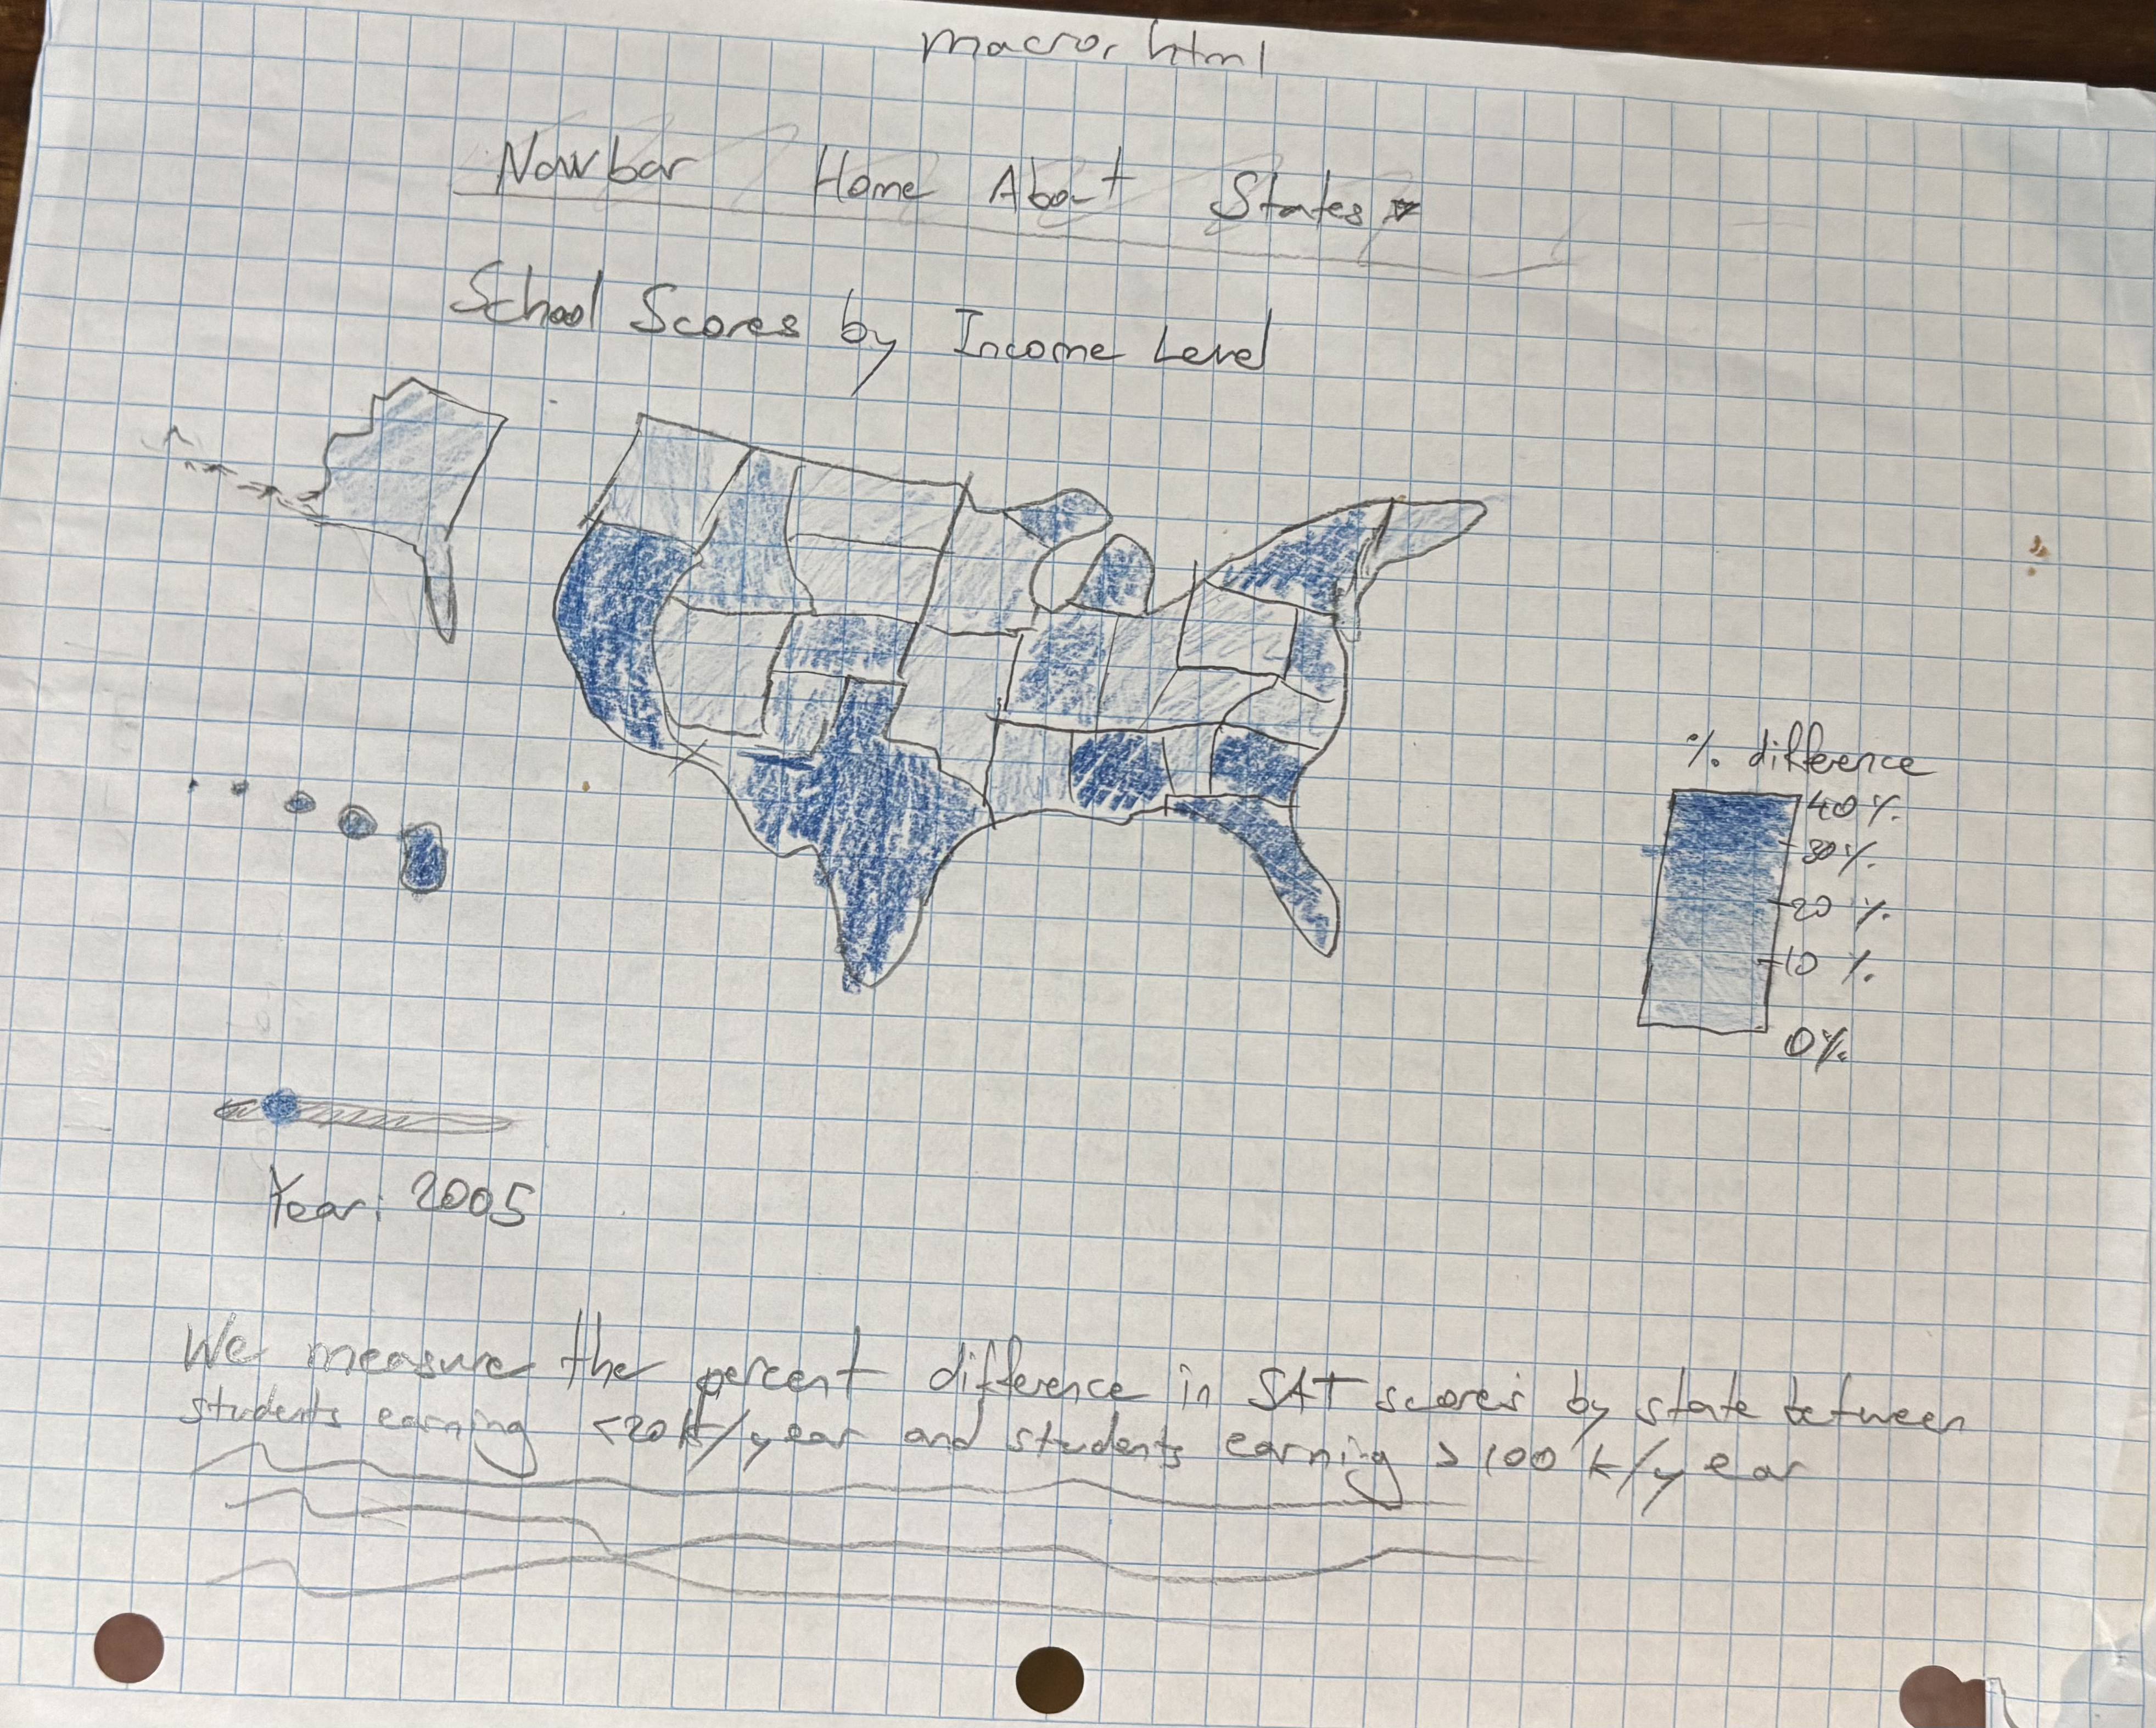 macro.html
Navbar Home About States
School Scores by Income Level
% difference
40%
30%
20%
10%
0%
Year: 2005
We measure the percent difference in SAT scores by state between
students earning <20k/year and students earning >100k/year